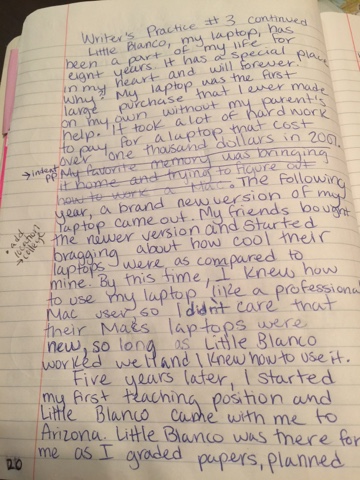 Writer's Practice #3 continued
Little Blanco, my laptop, has
been a part of my life for
eight years. It has a special place
in my heart and will forever.
Why? My laptop was the first
large purchase that I ever made
on my own without my parent's
help. It took a lot of hard work
to pay for a laptop that cost
over one thousand dollars in 2007.
→indent PP
My favorite memory was bringing
it home and trying to figure out
how to work a Mac. The following
year, a brand new version of my
laptop came out. My friends bought
the newer version and started
bragging about how cool their
laptops were as compared to
mine. By this time, I knew how
to use my laptop like a professional
Mac user, so I didn't care that
their Macs laptops were
new, so long as Little Blanco
worked well and I knew how to use it.
Five years later, I started
my first teaching position and
Little Blanco came with me to
Arizona. Little Blanco was there for
me as I graded papers, planned
• add
→ college
20